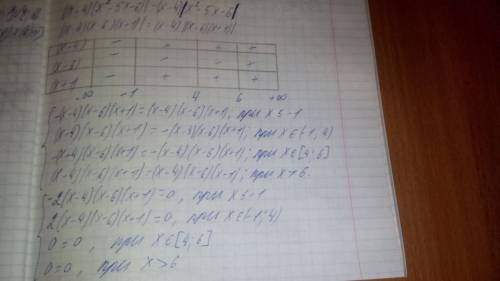 |x-4|(x²-5x-6)=(x-4)|x²-5x-6|
|x-4|(x-6)(x+1)=(x-4)|(x-6)(x+1)|
(x-4) - + + +
(x-6) - - - +
(x+1) - + + +
-∞ -1 4 6 +∞
-(x-4)(x-6)(x+1)=(x-4)(x-6)(x+1), при x≤-1
(x-6)(x+1)=-(x-4)(x-6)(x+1); при x∈(-1;4)
(x-6)(x+1)=-(x-4)(x-6)(x+1); при x∈[4;6]
(x-4)(x-6)(x+1)=(x-4)(x-6)(x+1); при x>6.
-2(x-4)(x-6)(x+1)=0, при x≤-1
2(x-4)(x-6)(x+1)=0, при x∈(-1;4)
0=0, при x∈[4;6]
0=0, при x>6